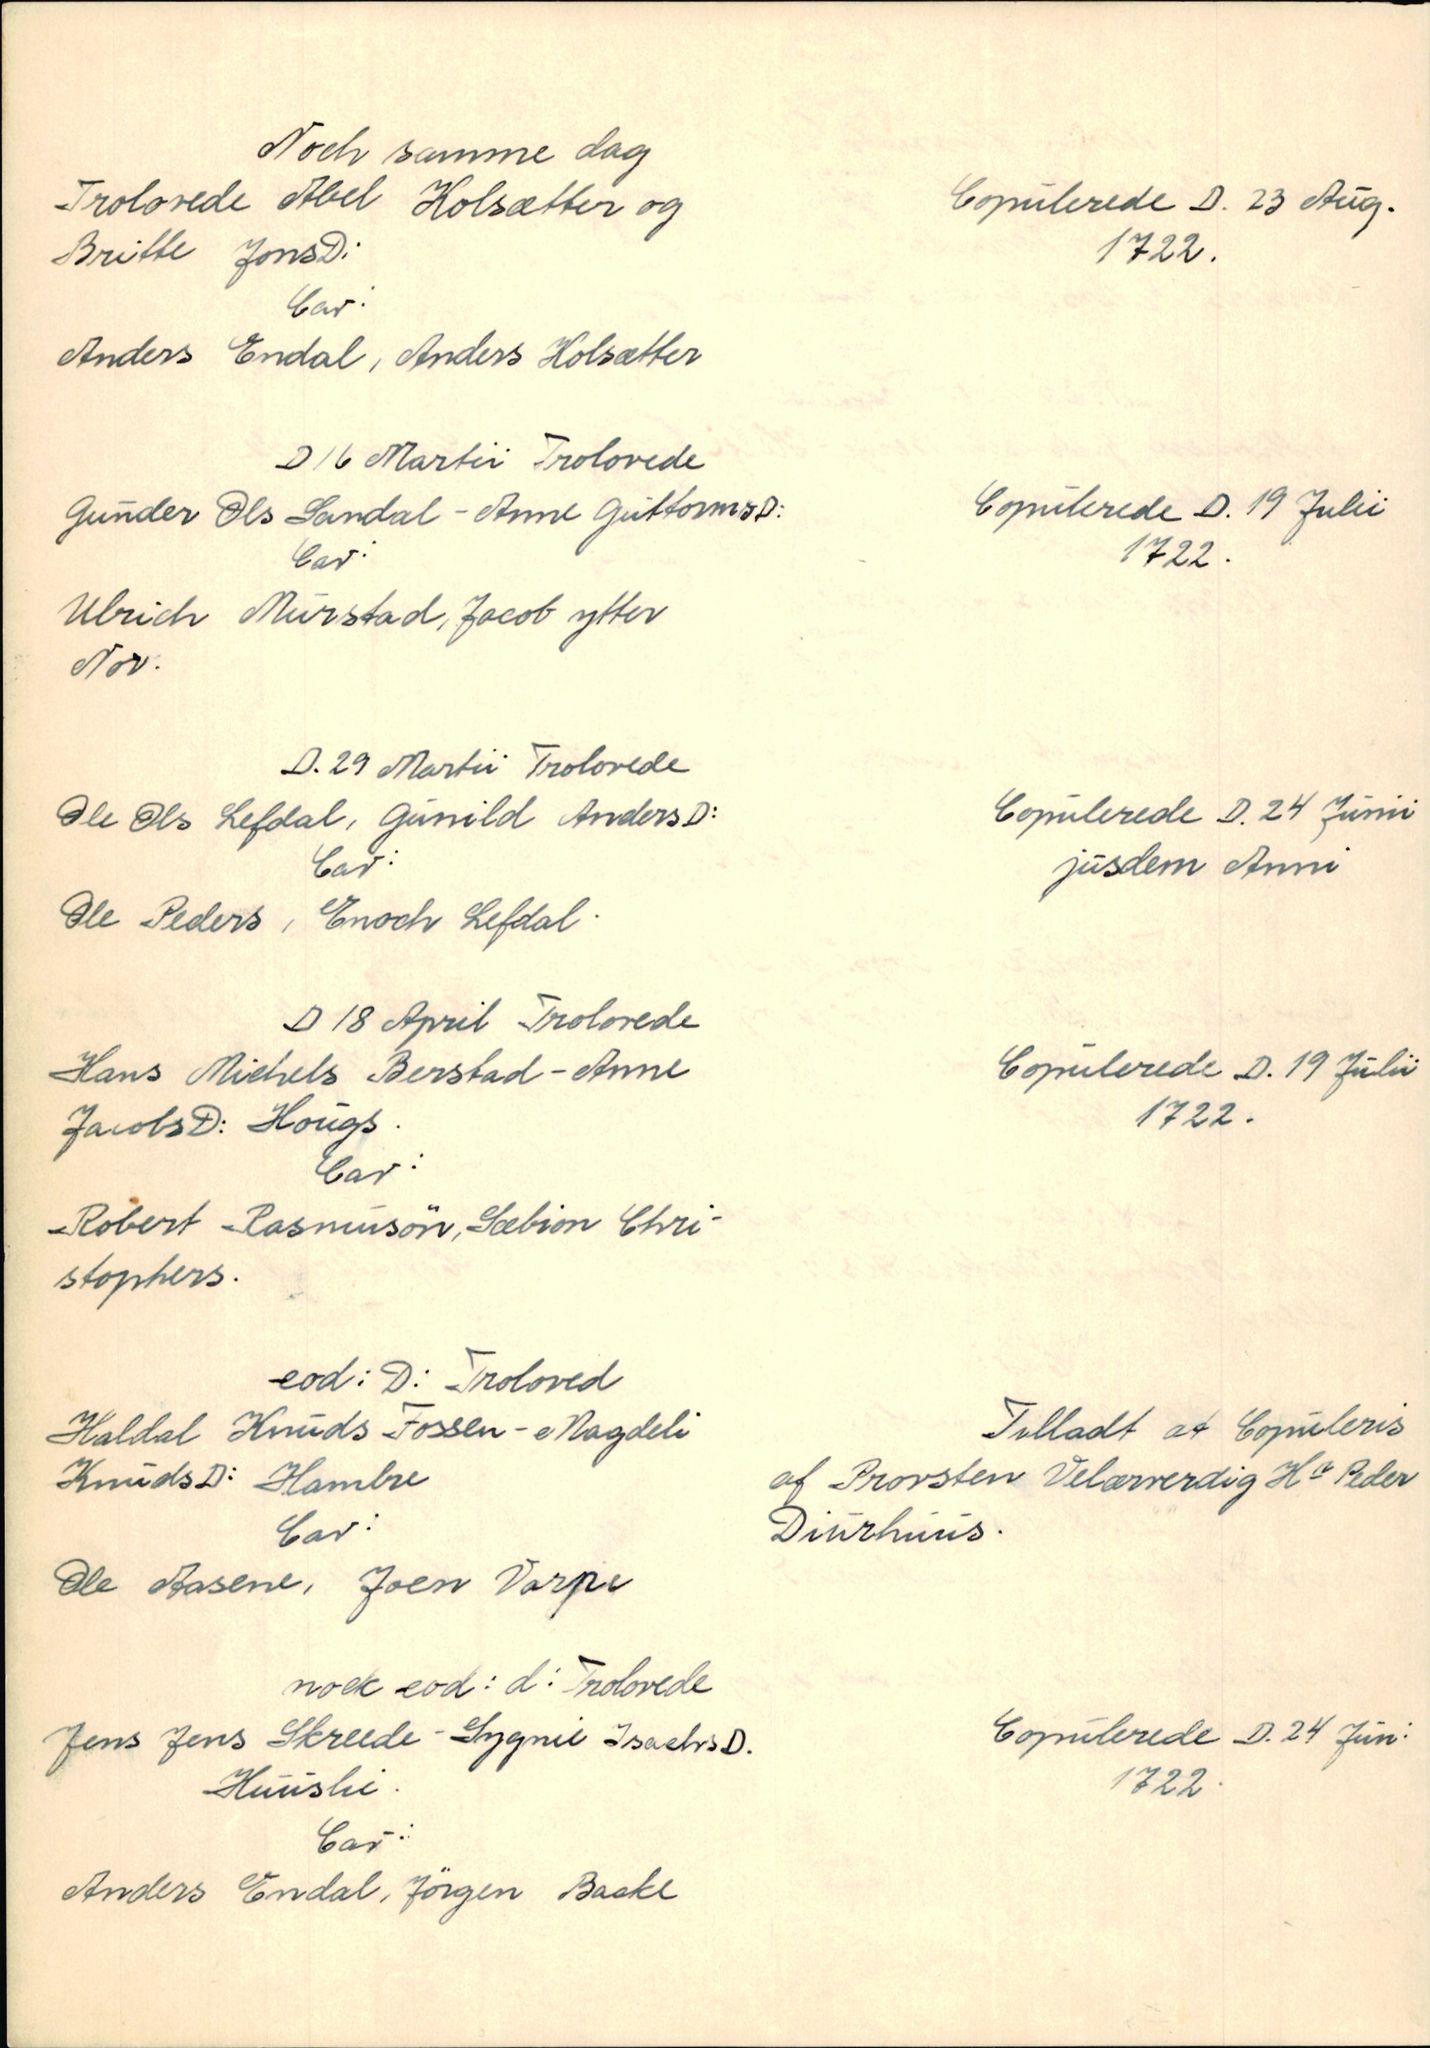 Noch samme dag
Trolovede Abel Holsætter og
Britte JonsD:
Cav:
Anders Endal, Anders Holsætter
Copulerede D. 23 Aug.
1722.
D 16 Martii Trolovede
Gunder Ols Sandal - Anne GuttormsD:
Cav:
Ulrich Murstad, Jacob ytter
Nov.
Copulerede D. 19 Julii
1722.
D. 29 Martii Trolovede
Ole Ols Lefdal, Gunild AndersD:
Cav:
Ole Peders, Enoch Lefdal.
Copulerede D. 24 Junii
jusdem Anni
D 18 April Trolovede
Hans Michels Berstad - Anne
JacobsD: Hougs.
Cav:
Robert Rasmusön, Sæbion Chri-
stophers.
Copulerede D. 19 Julii
1722.
eod: D: Troloved
Haldal Knuds Fossen - Magdeli
KnudsD: Hambre
Cav:
Ole Aasene, Joen Varpe
Tilladt at Copuleris
af Provsten Velærverdig Hr Peder
Diurhuus.
nock eod: d: Trolovede
Jens Jens Skreede - Sygnie IsachsD.
Huusli.
Cav:
Anders Endal, Jörgen Backe
Copulerede D. 24 Jun:
1722.